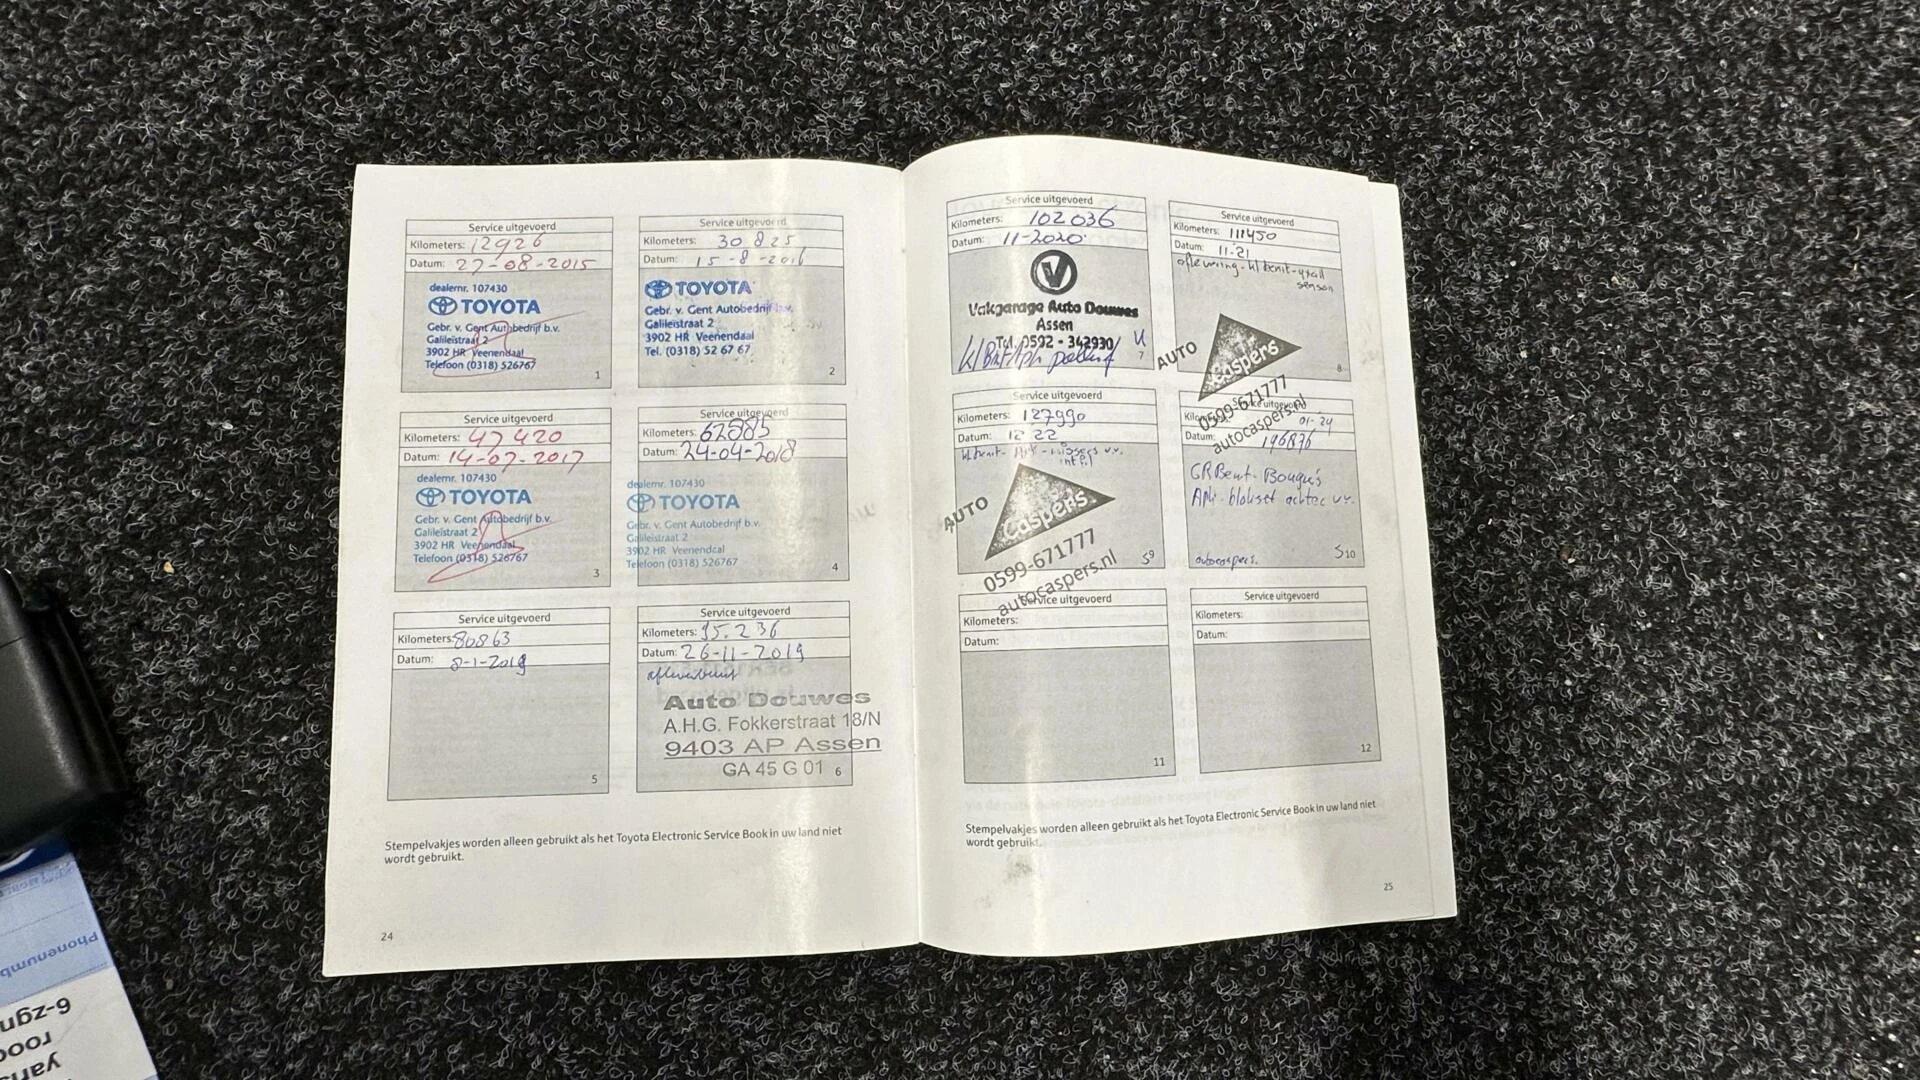 Service uitgevoerd
Kilometers: 12926
Datum: 27-08-2015
dealernr. 107430
TOYOTA
Gebr. v. Gent Autobedrijf b.v.
Galileïstraat 2
3902 HR Veenendaal
Telefoon (0318) 526767
1
Service uitgevoerd
Kilometers: 30 825
Datum: 15-8-2016
TOYOTA
Gebr. v. Gent Autobedrijf b.v.
Galileïstraat 2
3902 HR Veenendaal
Tel. (0318) 52 67 67
2
Service uitgevoerd
Kilometers: 47420
Datum: 14-07-2017
dealernr. 107430
TOYOTA
Gebr. v. Gent Autobedrijf b.v.
Galileïstraat 2
3902 HR Veenendaal
Telefoon (0318) 526767
3
Service uitgevoerd
Kilometers:
Datum: 24-04-2018
dealernr. 107430
TOYOTA
Gebr. v. Gent Autobedrijf b.v.
Galileïstraat 2
3902 HR Veenendaal
Telefoon (0318) 526767
4
Service uitgevoerd
Kilometers: 80863
Datum: 8-1-2019
5
Service uitgevoerd
Kilometers: 95.236
Datum: 26-11-2019
afleverbeurt
Auto Douwes
A.H.G. Fokkerstraat 18/N
9403 AP Assen
GA 45 G 01
6
Stempelvakjes worden alleen gebruikt als het Toyota Electronic Service Book in uw land niet
wordt gebruikt.
24
Service uitgevoerd
Kilometers: 102036
Datum: 11-2020
V
Vakgarage Auto Douwes
Assen
Tel. 0592 - 342930
7
Service uitgevoerd
Kilometers: 111450
Datum: 11-21
aflevering - kl beurt -
sensor
AUTO
Caspers
0599-671777
autocaspers.nl
8
Service uitgevoerd
Kilometers: 127990
Datum: 12 22
kl beurt-
AUTO
Caspers
0599-671777
autocaspers.nl
9
Service uitgevoerd
01-24
Datum:
GR Beurt - Bougie's
APK - blokset achter v.v.
autocaspers.
10
Service uitgevoerd
Kilometers:
Datum:
11
Service uitgevoerd
Kilometers:
Datum:
12
Stempelvakjes worden alleen gebruikt als het Toyota Electronic Service Book in uw land niet
wordt gebruikt.
25
Phonenumb
6-zgn